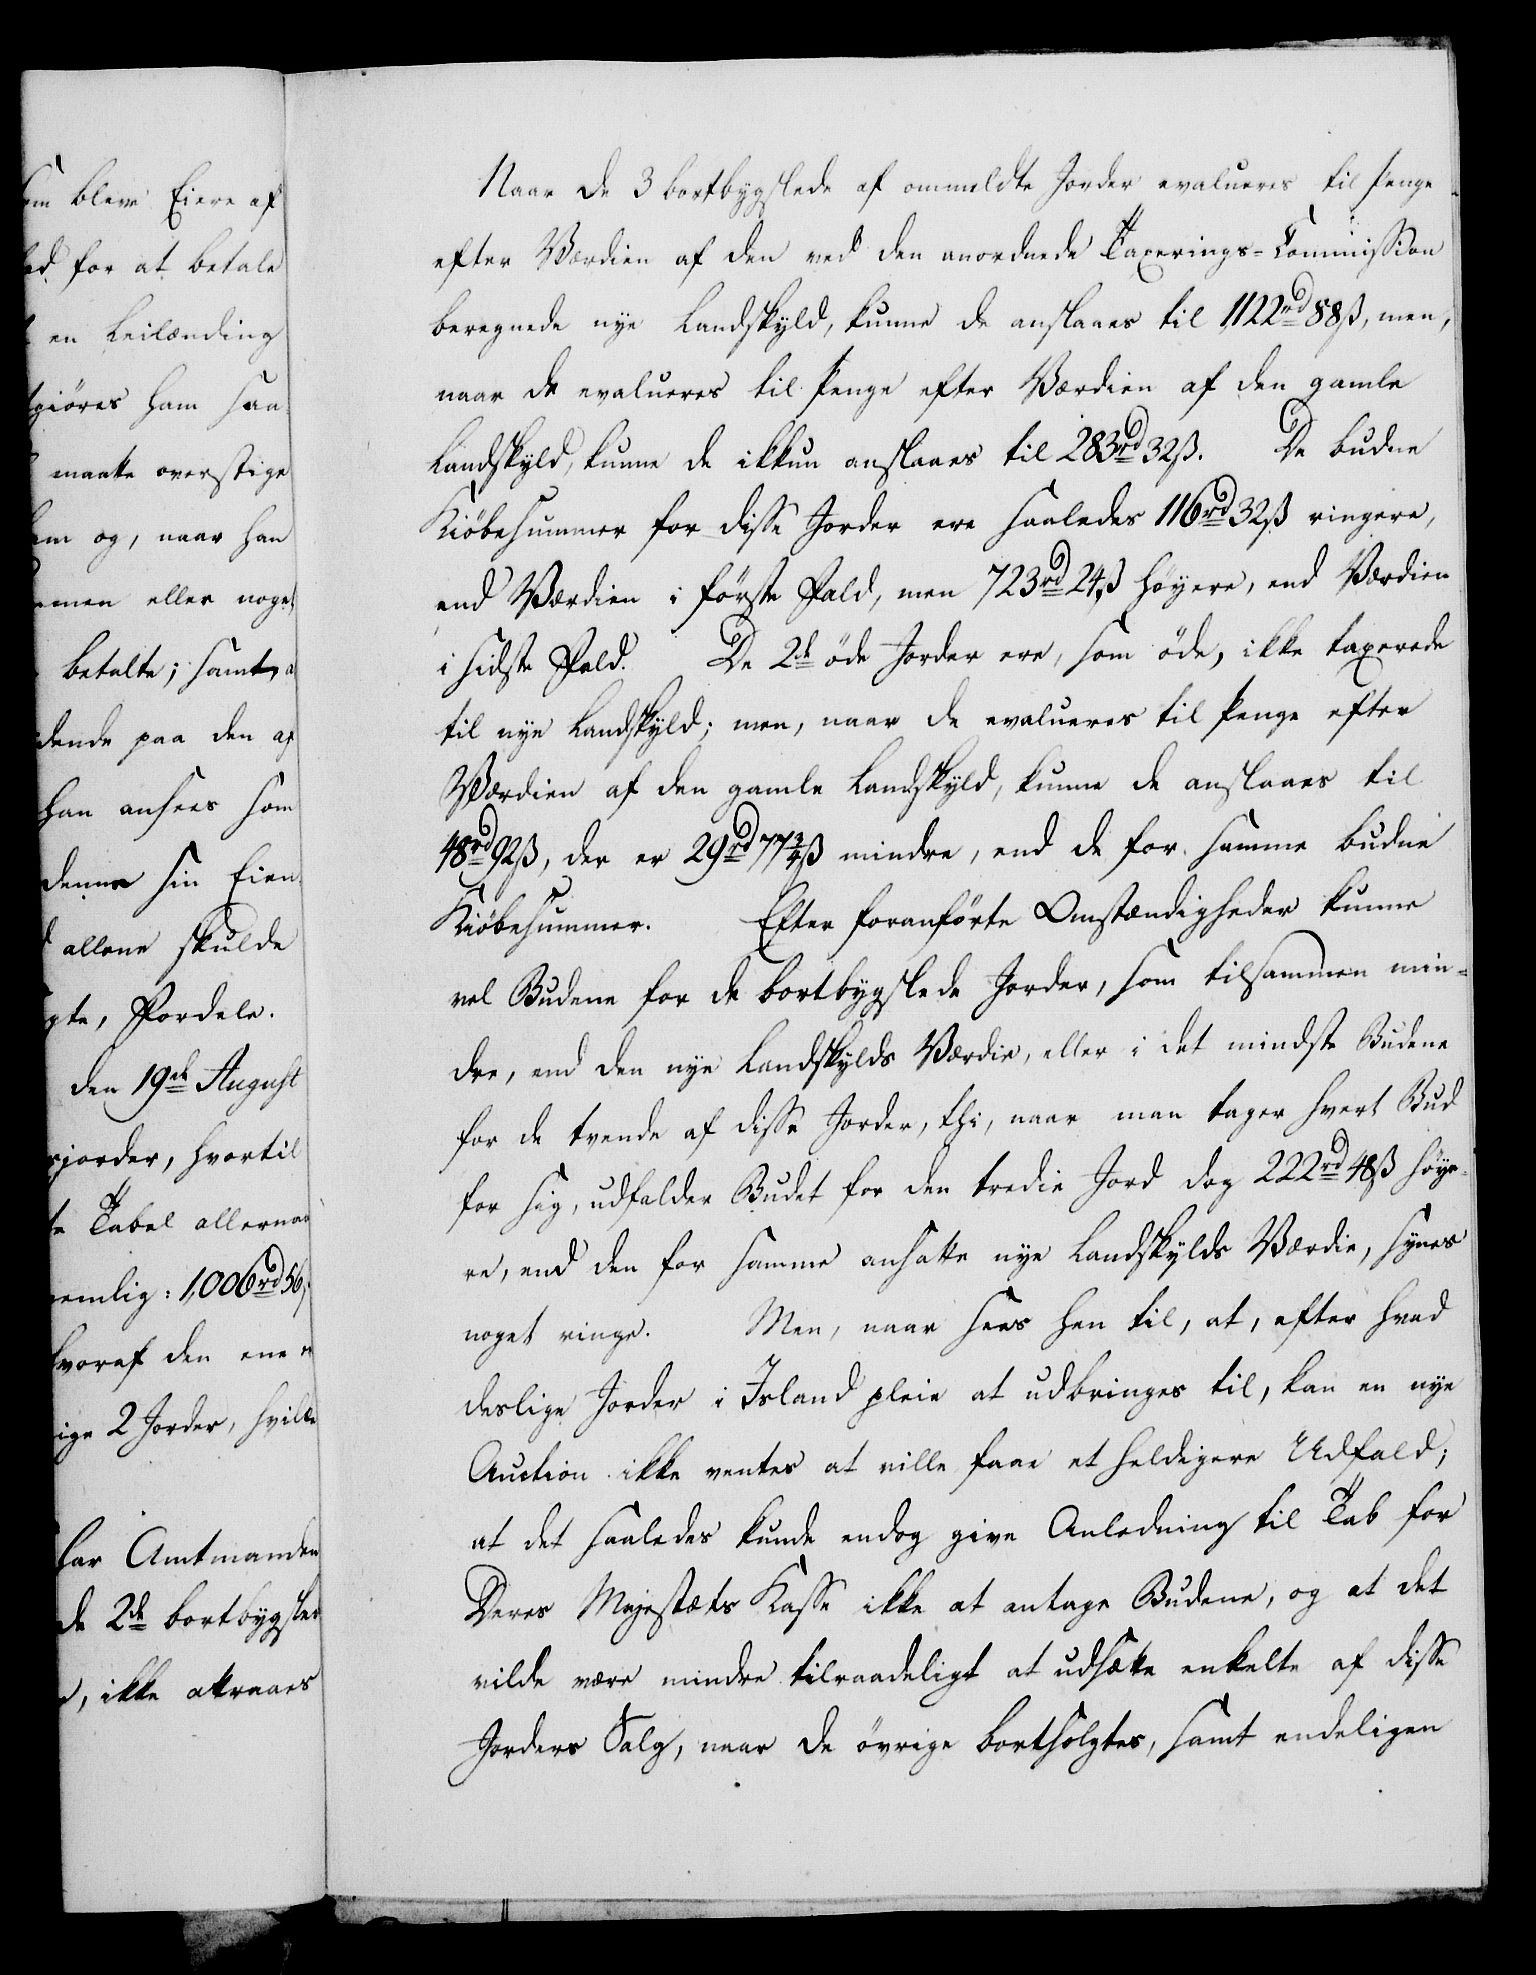 em bleve Eiere af
ed for at betale
en Leilænding
tgiöres ham saa
maatte overstige
em og, naar han
men eller noget
betalte; samt a
dende paa den af
han ansees som
denne sin Eien
allene skulde
gte, Fordele.
den 19de August
sjorder, hvortil
te Tabel allernaa
nemlig: 1,006rd 56
hvoraf den ene
ige 2 Jorder, hvilke
har Amtmanden
de 2de bortbygsler
, ikke attraaes
Naar de 3 bortbygslede af ommeldte Jorder evalueres til Penge
efter Værdien af den ved den anordnede Taxerings-Commission
beregnede nye Landskyld, kunne de anslaaes til 1122rd 88ß, men,
naar de evalueres til Penge efter Værdien af den gamle
Landskyld, kunne de ikkun anslaaes til 283rd 32ß. De budne
Kiöbesummer for disse Jorder ere saaledes 116rd 32ß ringere,
end Værdien i förste Fald, men 723rd 24ß höyere, end Værdien
i sidste Fald. De 2de öde Jorder ere, som öde, ikke taxerede
til nye Landskyld; men, naar de evalueres til Penge efter
Værdien af den gamle Landskyld, kunne de anslaaes til
48rd 92ß, der er 29rd 77¾ß mindre, end de for samme budne
Kiöbesummer. Efter foranförte Omstændigheder kunne
vel Budene for de bortbygslede Jorder, som tilsammen min-
dre, end den nye Landskylds Værdie, eller i det mindste Budene
for de tvende af disse Jorder, thi, naar man tager hvert Bud
for sig, udfalder Budet for den tredie Jord dog 222rd 48ß höye-
re, end den for samme ansatte nye Landskylds Værdie, synes
noget ringe. Men, naar sees hen til, at, efter hvad
deslige Jorder i Island pleie at udbringes til, kan en nye
Auction ikke ventes at ville faae et heldigere Udfald;
at det saaledes kunde endog give Anledning til Tab for
Deres Majestæts Kasse ikke at antage Budene, og at det
vilde være mindre tilraadeligt at udsætte enkelte af disse
Jorders Salg, naar de övrige bortsolgtes, samt endeligen